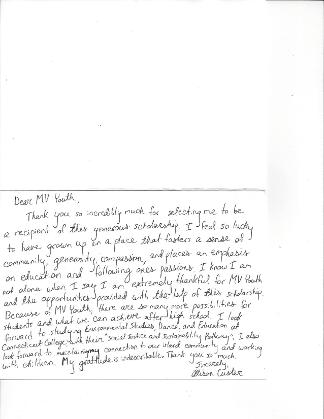 Dear MV Youth,
Thank you so incredibly much for selecting me to be
a recipient of this generous scholarship. I feel so lucky
to have grown up in a place that fosters a sense of
community, generosity, compassion, and places an emphasis
on education and following ones passions. I know I am
not alone when I say I am extremely thankful for MV Youth
and the opportunities provided with the help of this scholarship.
Because of MV Youth, there are so many more possibilities for
students and what we can achieve after high school. I look
forward to studying Environmental Studies, Dance, and Education at
Connecticut College with their "Social Justice and Sustainability Pathway". I also
look forward to maintaining my connection to our island community and working
with children. My gratitude is indescribable. Thank you so much.
Sincerely,